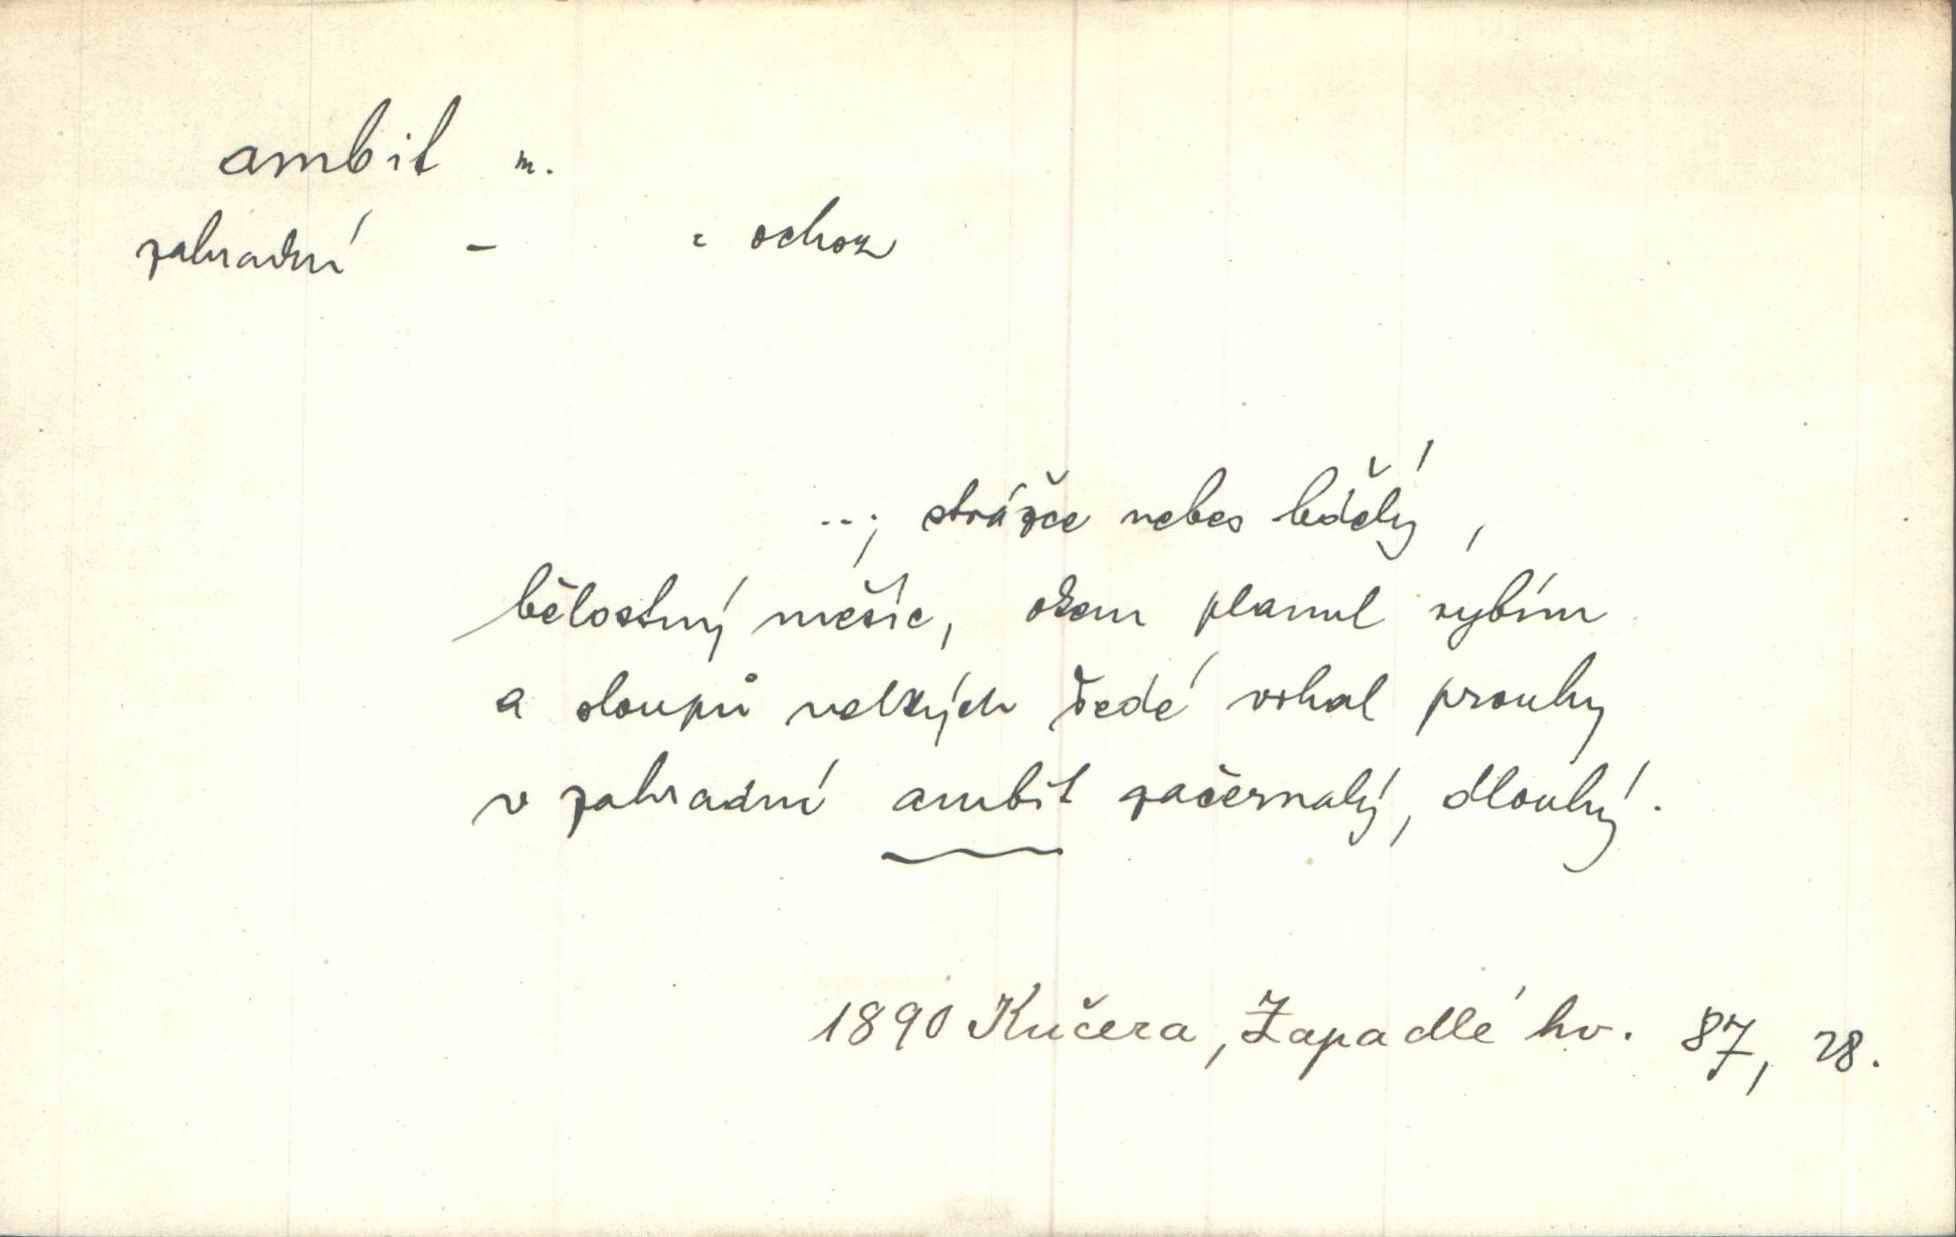 ambit m.
zahradní - = ochoz
...; strážce nebes bdělý,
bělostný měsíc, okem planul rybím
a sloupů velkých šedé vrhal pruhy
v zahradní ambit začernalý, dlouhý.
1890 Kučera, Zapadlé hv. 87, 28.